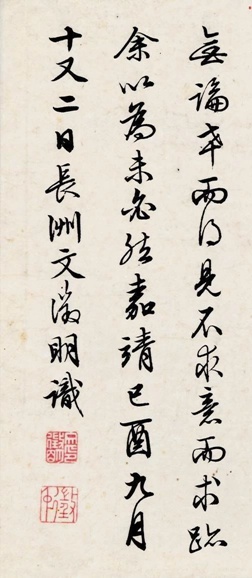 無論幸而得見不求意而求跡
余以為未必然嘉靖己酉九月
十又二日長洲文徵明識